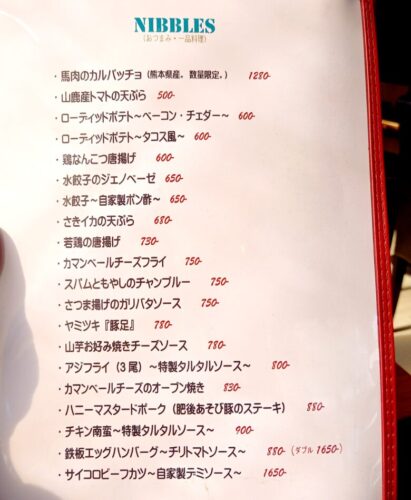 NIBBLES
(おつまみ・一品料理)
・馬肉のカルパッチョ(熊本県産。数量限定。) 1280-
・山鹿産トマトの天ぷら 500-
・ローディッドポテト〜ベーコン・チェダー〜 600-
・ローディッドポテト〜タコス風〜 600-
・鶏なんこつ唐揚げ 600-
・水餃子のジェノベーゼ 650-
・水餃子〜自家製ポン酢〜 650-
・さきイカの天ぷら 680-
・若鶏の唐揚げ 730-
・カマンベールチーズフライ 750-
・スパムともやしのチャンプルー 750-
・さつま揚げのガリバタソース 750-
・ヤミツキ『豚足』 780-
・山芋お好み焼きチーズソース 780-
・アジフライ(3尾)〜特製タルタルソース〜 800-
・カマンベールチーズのオーブン焼き 830-
・ハニーマスタードポーク(肥後あそび豚のステーキ) 880-
・チキン南蛮〜特製タルタルソース〜 900-
・鉄板エッグハンバーグ〜チリトマトソース〜 880-(ダブル 1650-)
・サイコロビーフカツ〜自家製デミソース〜 1650-